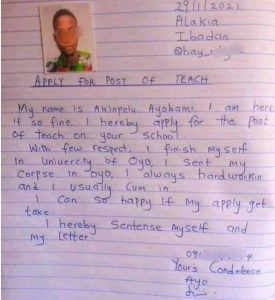 29/1/2021
Alakia
Ibadan
APPLY FOR POST OF TEACH
My name is Akinpelu Ayobami I am here
if so fine I hereby apply for the post
of teach on your school
With few respect, I finish myself
In Univercity of Oyo, I sent my
Corpse in Oyo, I always hardworkin
and I usually Cum in
I can so happy If my apply get
take
I hereby Sentense Myself and
my letter
081 4
Your's Condolence
Ayo